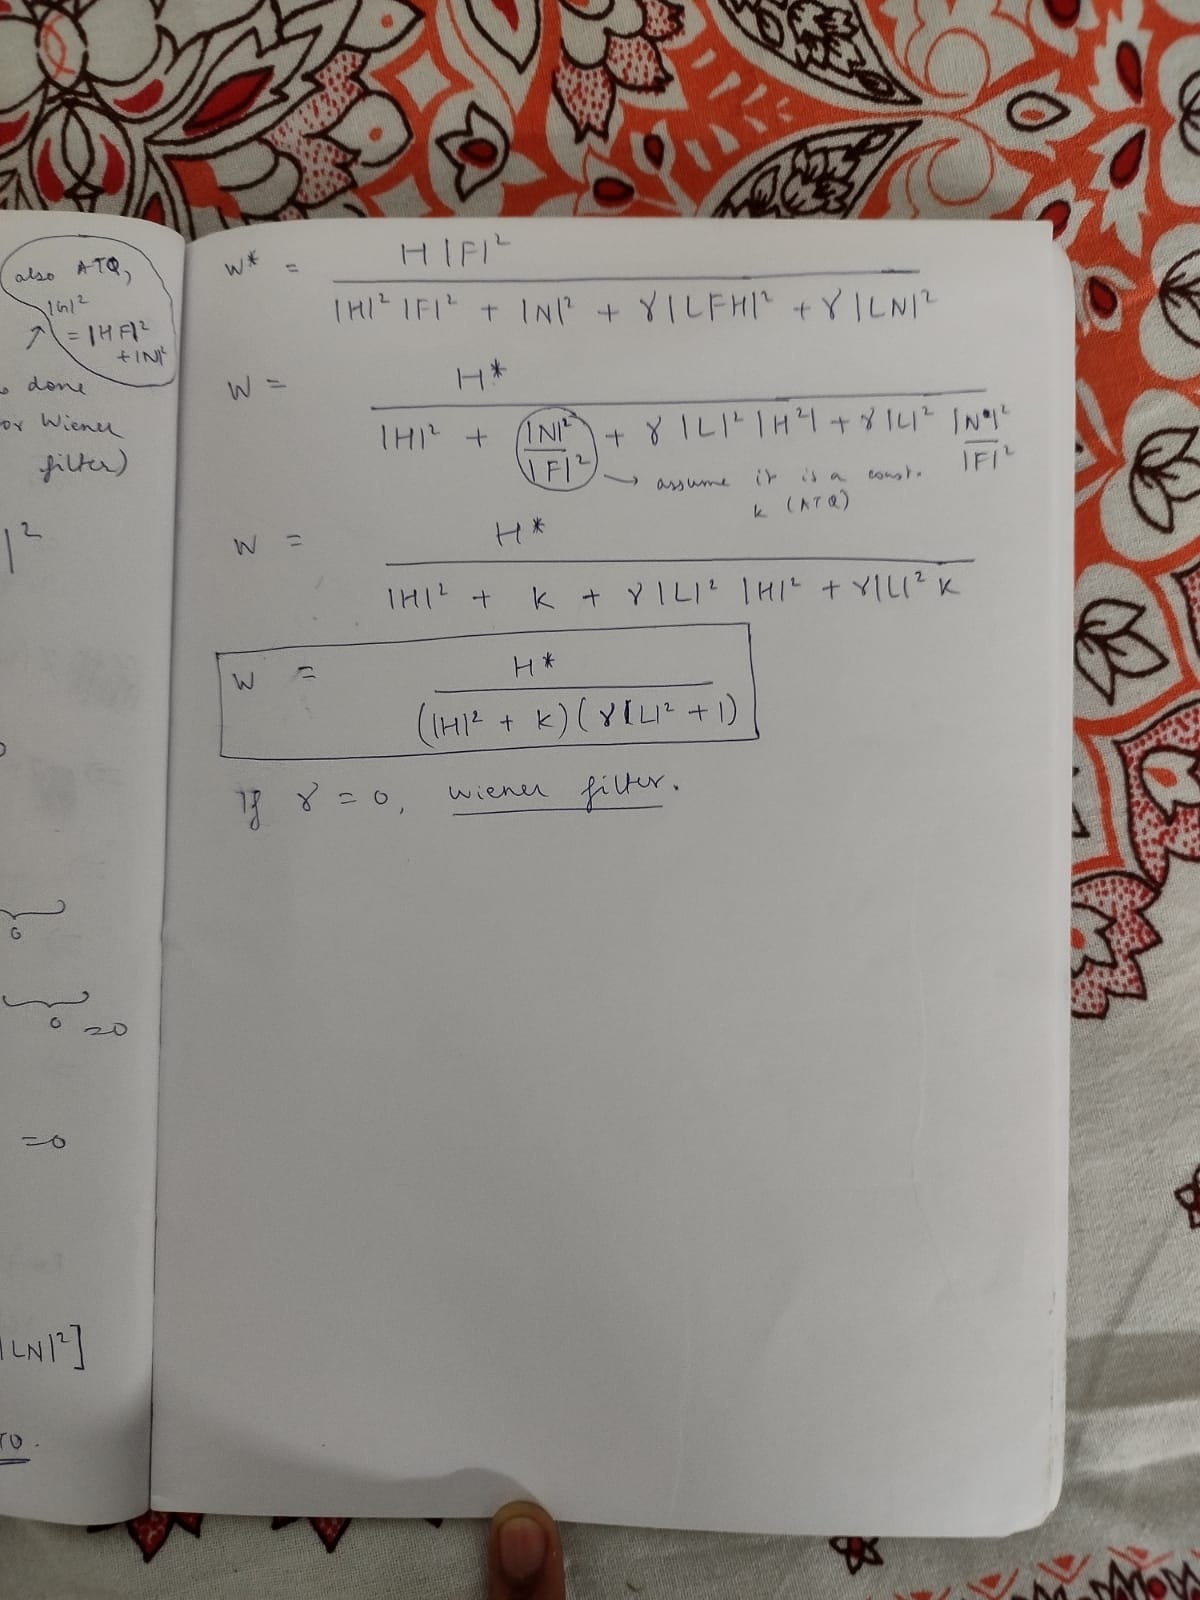 also ATQ,
|G|²
= |HF|²
+ |N|²
done
or Wiener
filter)
|²
0
0 =0
=0
|LN|²]
TO.
W* = H|F|² / |H|² |F|² + |N|² + γ|LFH|² + γ|LN|²
W = H* / |H|² + |N|²/|F|² + γ |L|² |H²| + γ|L|² |N|²/|F|²
→ assume it is a const.
k (ATQ)
W = H* / |H|² + k + γ|L|² |H|² + γ|L|² k
W = H* / (|H|² + k)(γ|L|² + 1)
If γ = 0, wiener filter.